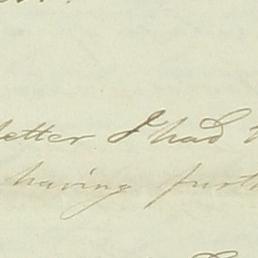 letter I had
having furth